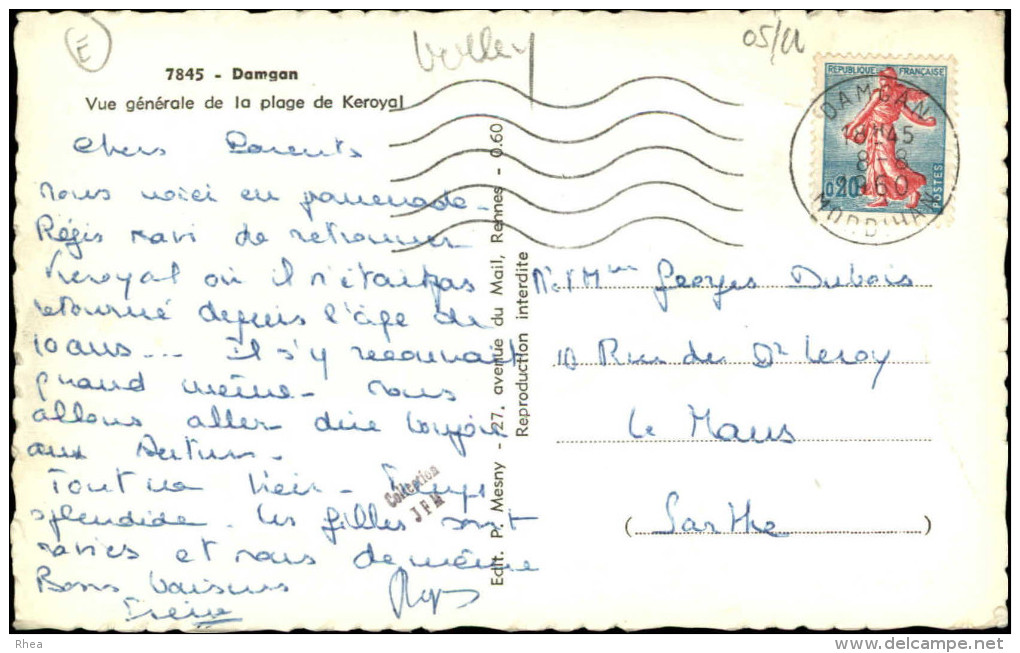 E
Volley
05/11
7845 - Damgan
Vue générale de la plage de Keroyal
REPUBLIQUE FRANÇAISE
0,20
POSTES
DAMGAN
18H45
8-8
1960
MORBIHAN
Chers Parents
nous voici en promenade -
Régis ravi de retrouver
Keroyal où il n'était pas
retourné depuis l'âge de
10 ans... Il s'y reconnait
quand même - nous
allons aller dire bonjour
aux
Tout va bien - Temps
splendide. les filles sont
ravies et nous de même
Bons baisers
Régis
Collection
JFM
Edit. P. Mesny - 727, avenue du Mail, Rennes - 0.60
Reproduction interdite
Mr & Mme Georges Dubois
10 Rue du Dr Leroy
Le Mans
(Sarthe)
Rhea
delcampe.net